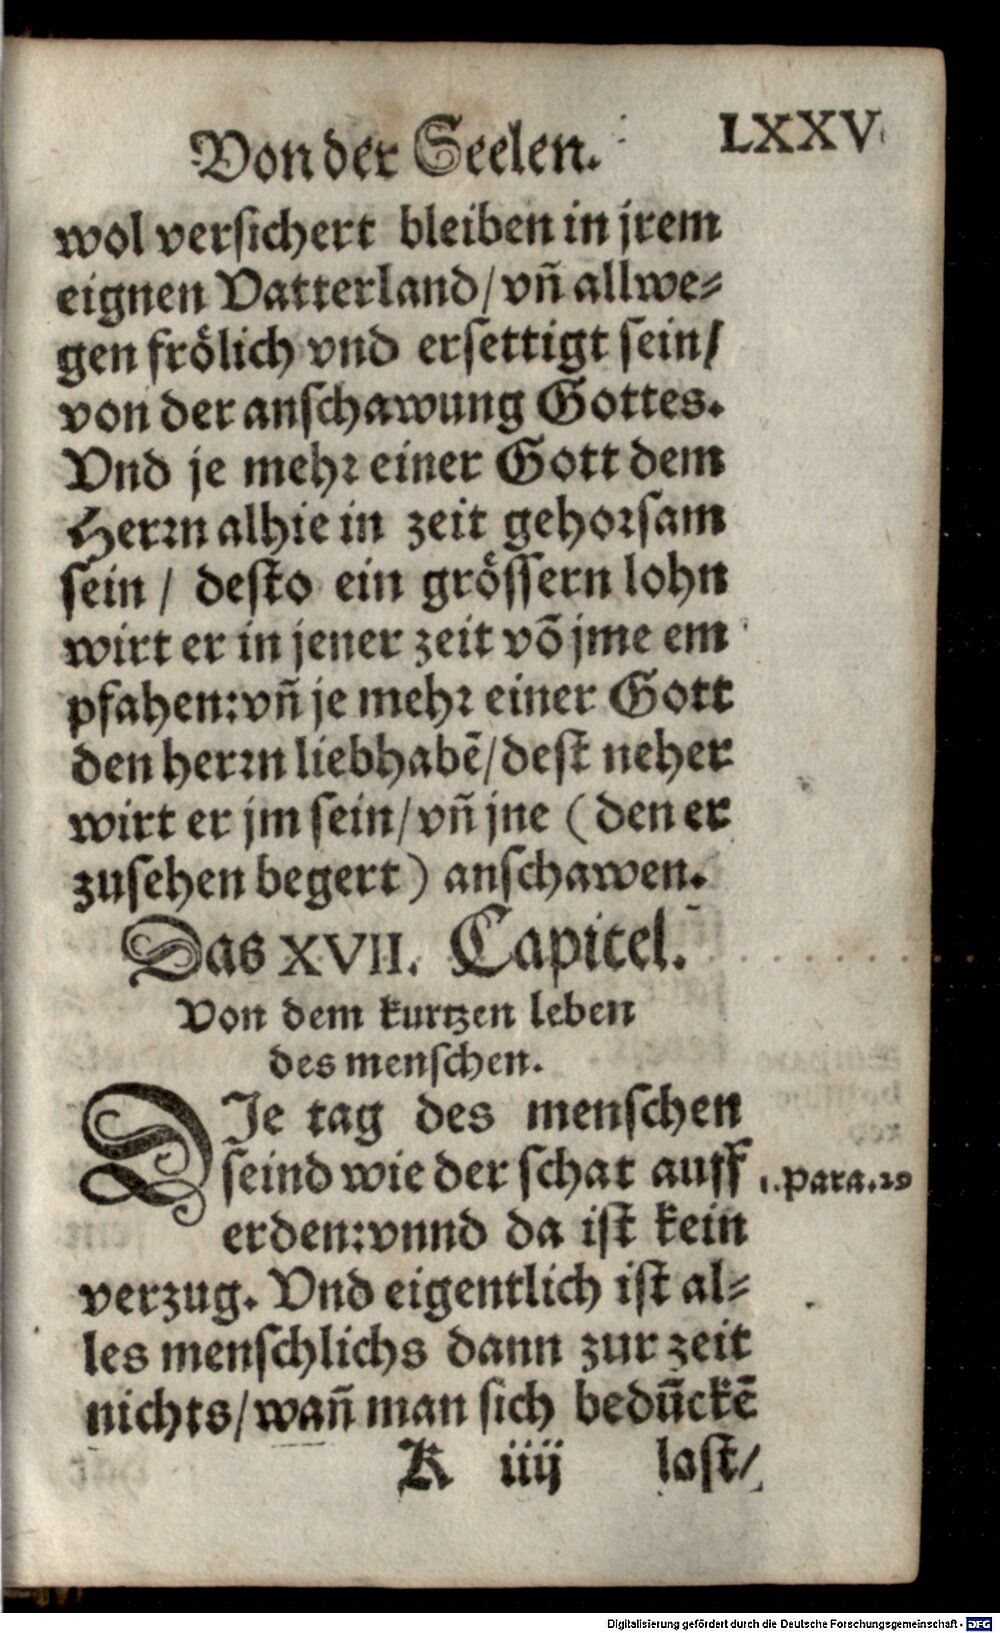 Von der Seelen. LXXV
wol versichert bleiben in jrem
eignen Vatterland/ vñ allwe=
gen frölich vnd ersettigt sein/
von der anschawung Gottes.
Vnd je mehr einer Gott dem
Herrn alhie in zeit gehorsam
sein / desto ein grössern lohn
wirt er in jener zeit võ jme em
pfahen: vñ je mehr einer Gott
den herrn liebhabẽ/ dest neher
wirt er jm sein/ vñ jne (den er
zusehen begert) anschawen.
Das XVII. Capitel.
Von dem kurtzen leben
des menschen.
DIe tag des menschen
seind wie der schat auff
1. Para. 29
erden: vnnd da ist kein
verzug. Vnd eigentlich ist al=
les menschlichs dann zur zeit
nichts/ wañ man sich bedũckẽ
K iiij last/
Digitalisierung gefördert durch die Deutsche Forschungsgemeinschaft - DFG